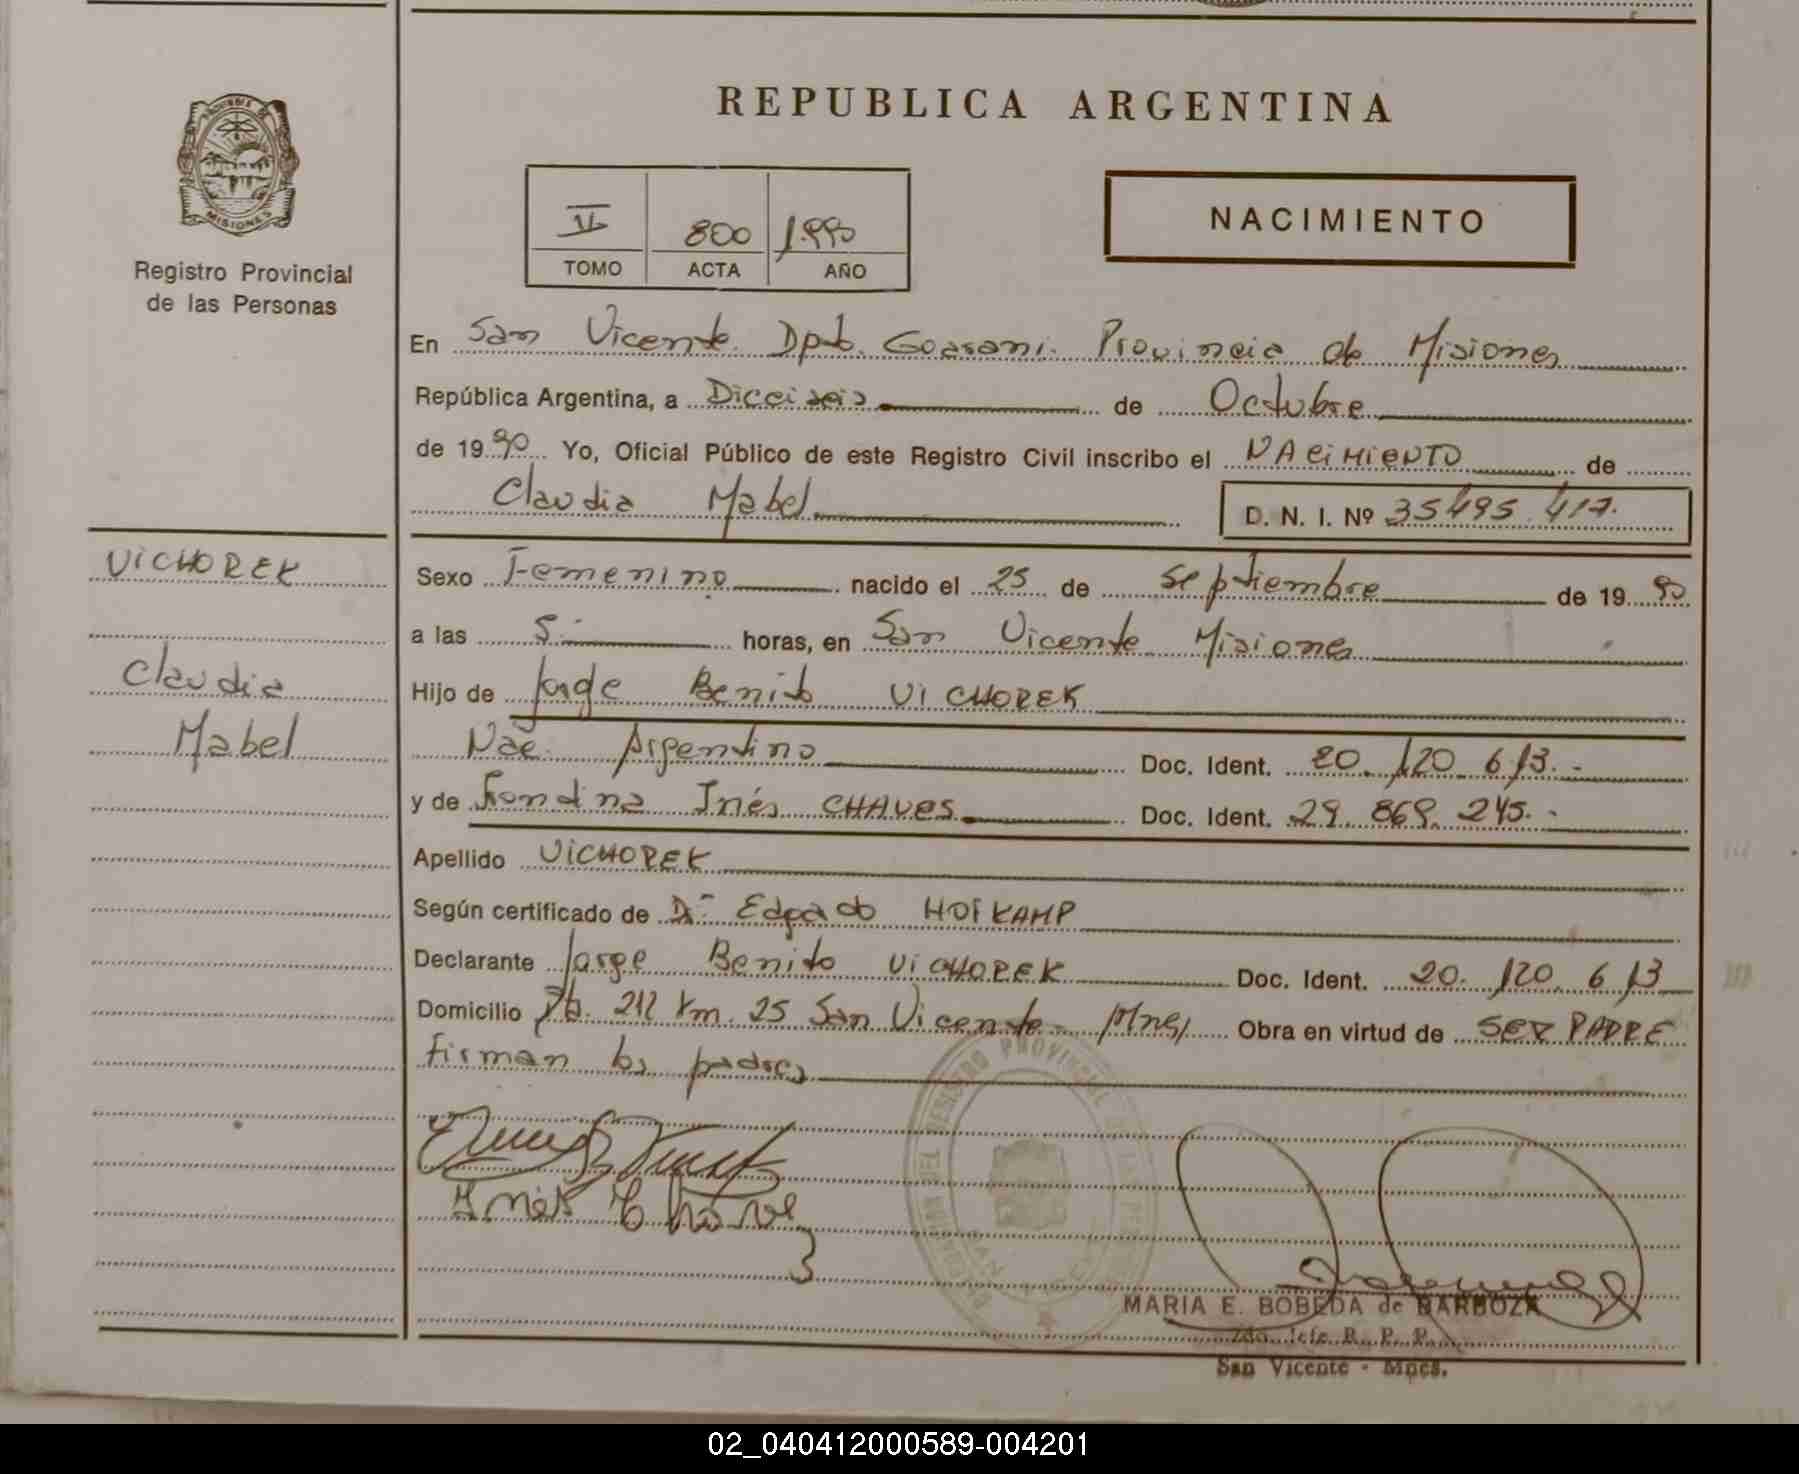 REPUBLICA ARGENTINA
MISIONES
Registro Provincial
de las Personas
II 800 1.990
TOMO ACTA AÑO
NACIMIENTO
En San Vicente Dpto. Guaraní. Provincia de Misiones
República Argentina, a Dieciseis de Octubre
de 1990 Yo, Oficial Público de este Registro Civil inscribo el NACiMiENTO de
Claudia Mabel D. N. I. Nº 35495.417.
VICHOREK
Claudia
Mabel
Sexo Femenino nacido el 25 de septiembre de 1990
a las 5.- horas, en San Vicente Misiones
Hijo de Jorge Benito ViCHOREK
Nac. Argentino Doc. Ident. 20.120.613.-
y de Inés CHAVES Doc. Ident. 29.869.245.-
Apellido ViCHOREK
Según certificado de Dr Edgardo HOFKAMP
Declarante Jorge Benito ViCHOREK Doc. Ident. 20.120.613
Domicilio 212 Km. 25 San Vicente - Mnes, Obra en virtud de SER PADRE
Firman los padres
Inés Chavez
MARIA E. BOBEDA de BARBOZA
2do. Jefe R. P. P.
San Vicente - Mnes.
02_040412000589-004201